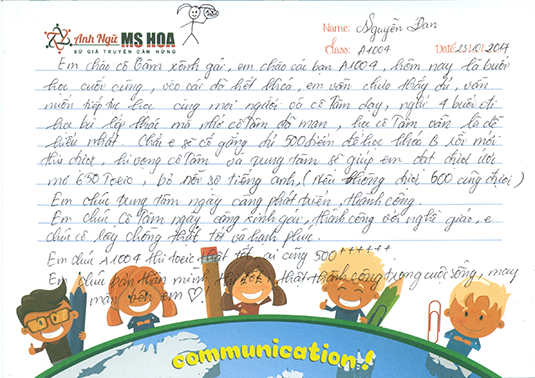 Anh Ngữ MS HOA
SỨ GIẢ TRUYỀN CẢM HỨNG
Name: Nguyễn Dan
Class: A1004 Date: 23/10/2014
Em chào cô Tâm xinh gái, em chào các bạn A1004, hôm nay là buổi
học cuối cùng, vèo cái đã hết khóa, em vẫn chưa thấy đủ, vẫn
muốn tiếp tục học cùng mọi người và cô Tâm dạy, nghỉ 4 buổi đi
học bù lớp khác mà nhớ cô Tâm dã man, học cô Tâm vẫn là dễ
hiểu nhất. Chắc e sẽ cố gắng thi 500 điểm để học khóa B rồi mới
thi chơi, hi vọng cô Tâm và trung tâm sẽ giúp em đạt được ước
mơ 650 Toeic, bỏ nỗi sợ tiếng anh, (Nếu không được 600 cũng được)
Em chúc trung tâm ngày càng phát triển, thành công.
Em chúc cô Tâm ngày càng xinh gái, thành công với nghề giáo, e
chúc cô lấy chồng thật tốt và hạnh phúc.
Em chúc A1004 thi toeic thật tốt, ai cũng 500++++++.
Em chúc bản thân mình thật thành công trong cuộc sống, may
mắn bên em
communication!